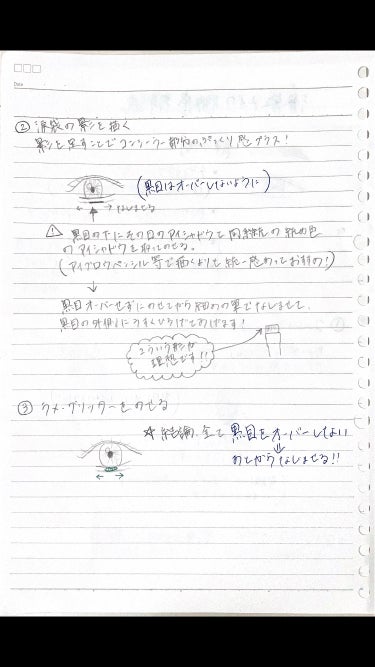 Date
② 涙袋の影を描く
影を足すことでコンシーラー部分のぷっくり感プラス!
(黒目はオーバーしないように)
← → なじませる
⚠ 黒目の下にその日のアイシャドウと同系統の締め色
のアイシャドウを軽くのせる。
(アイブロウペンシル等で描くよりも統一感あっておすすめ!)
↓
黒目オーバーせずにのせてから細めの筆でなじませて、
黒目の外側にうすくひろげてあげます!
こういう形が
理想です!!
③ ラメ・グリッターをのせる
☆ 結論、全て黒目をオーバーしない
⇓
のせてからなじませる!!